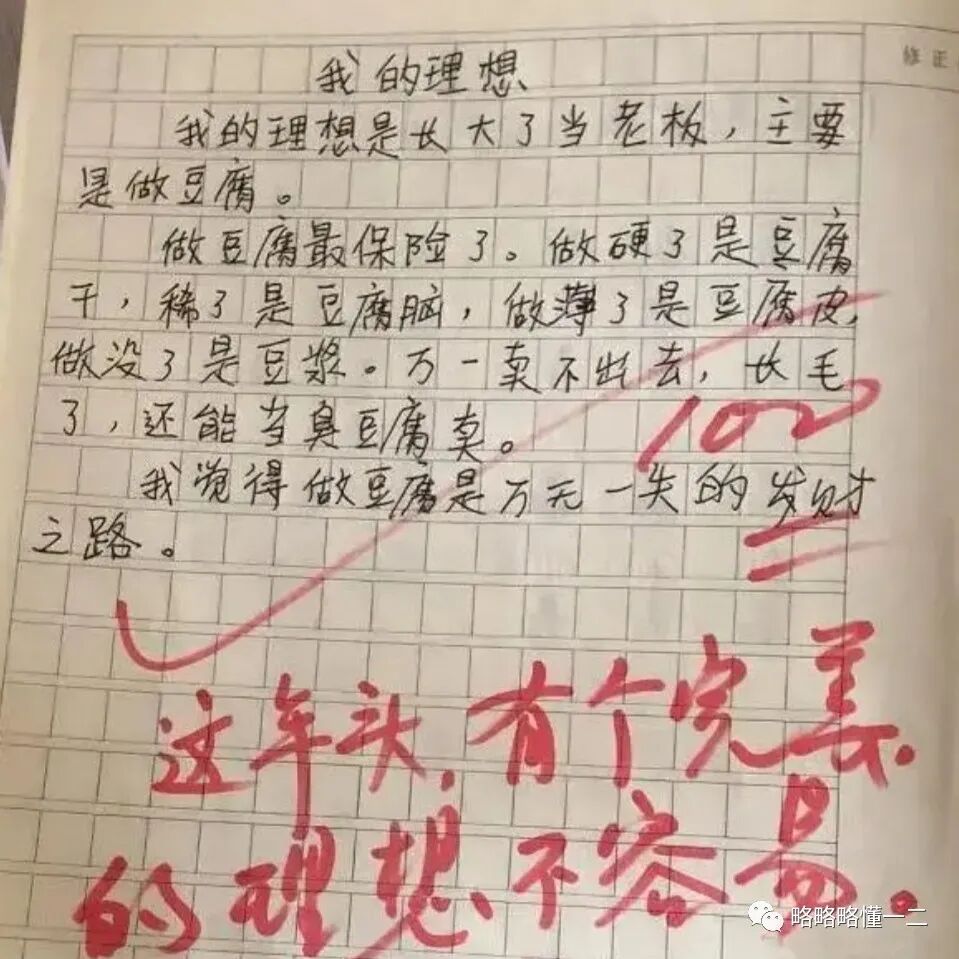 修正
我的理想
我的理想是长大了当老板，主要
是做豆腐。
做豆腐最保险了。做硬了是豆腐
干，稀了是豆腐脑，做薄了是豆腐皮，
做没了是豆浆。万一卖不出去，长毛
了，还能当臭豆腐卖。
100
我觉得做豆腐是万无一失的发财
之路。
这年头，有个完美
的理想不容易。
略略略懂一二